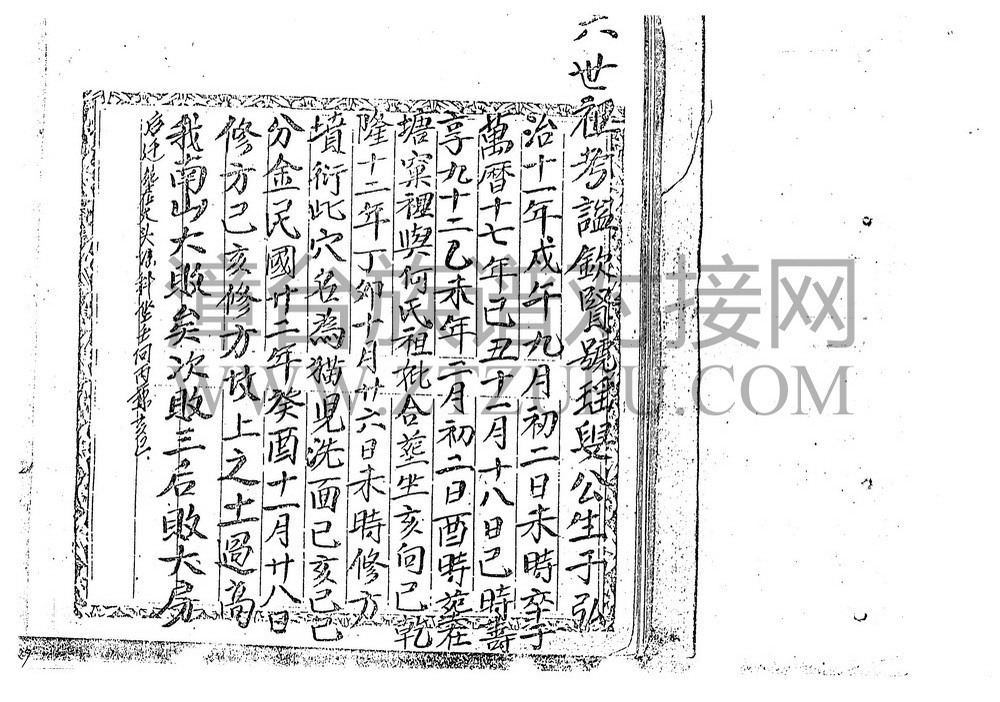 六世祖考謚欽賢號瑶叟公生于弘
治十一年戊午九月初二日未時卒于
萬曆十七年己丑十一月十八日己時壽
享九十二乙未年二月初二日酉時塟在
塘窠裡與何氏祖妣合塟坐亥向己乾
隆十二年丁卯十月廿六日未時修方
墳衍此穴名為猫児洗面己亥己巳
分金民國廿二年癸酉十一月廿八日
修方己亥修方坟上之土過高
我南山大敗矣次敗三后敗大房
后迁 头 坐 向丙
漳台族谱对接网
WWW.ZTZUPU.COM